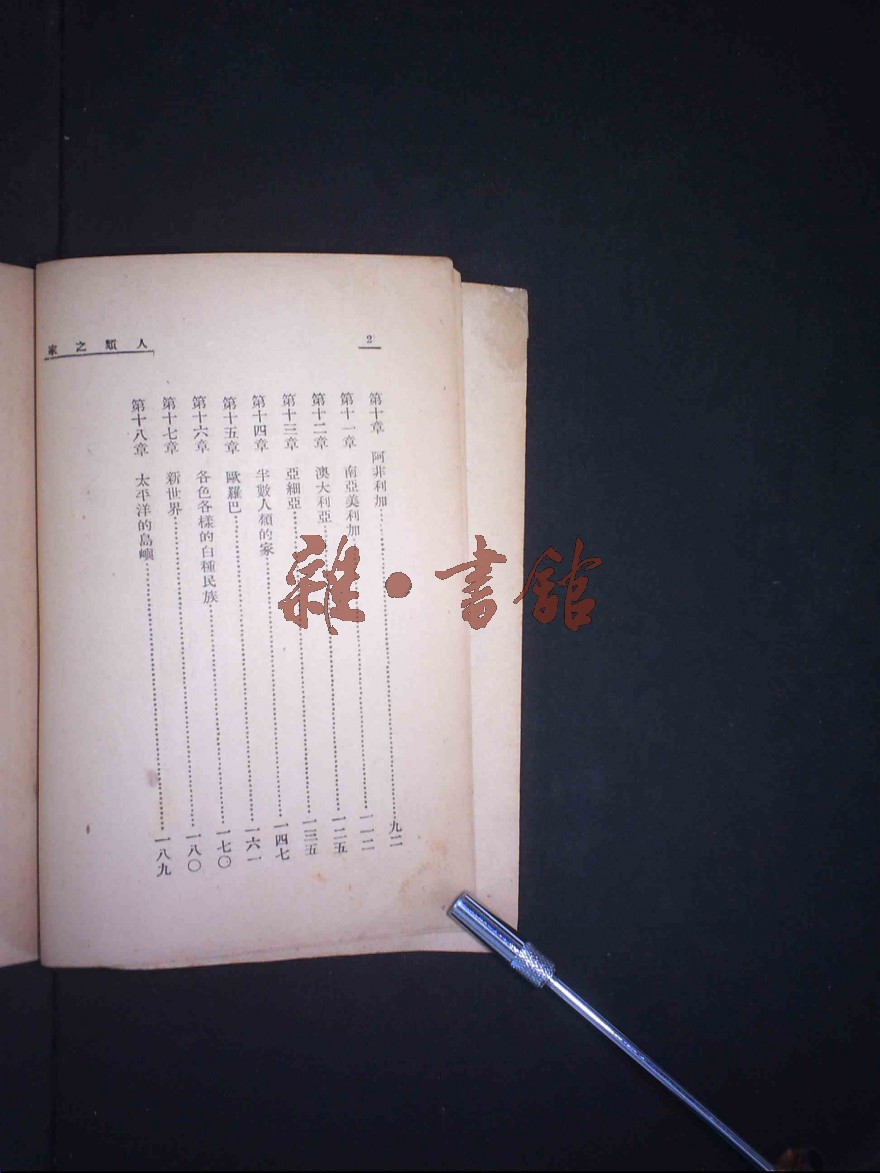 人類之家
2
第十章 阿非利加……九二
第十一章 南亞美利加……一一二
第十二章 澳大利亞……一二五
第十三章 亞細亞……一三五
第十四章 半數人類的家……一四七
第十五章 歐羅巴……一六一
第十六章 各色各樣的白種民族……一七〇
第十七章 新世界……一八〇
第十八章 太平洋的島嶼……一八九
雜·書館